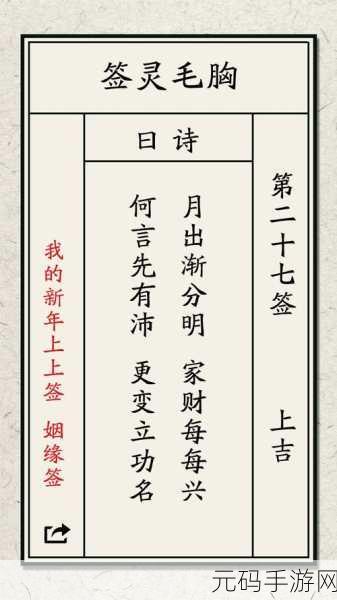 签灵毛胸
日诗
第二十七签 上吉
月出渐分明 家财每每兴
何言先有沛 更变立功名
我的新年上上签 姻缘签
元码手游网